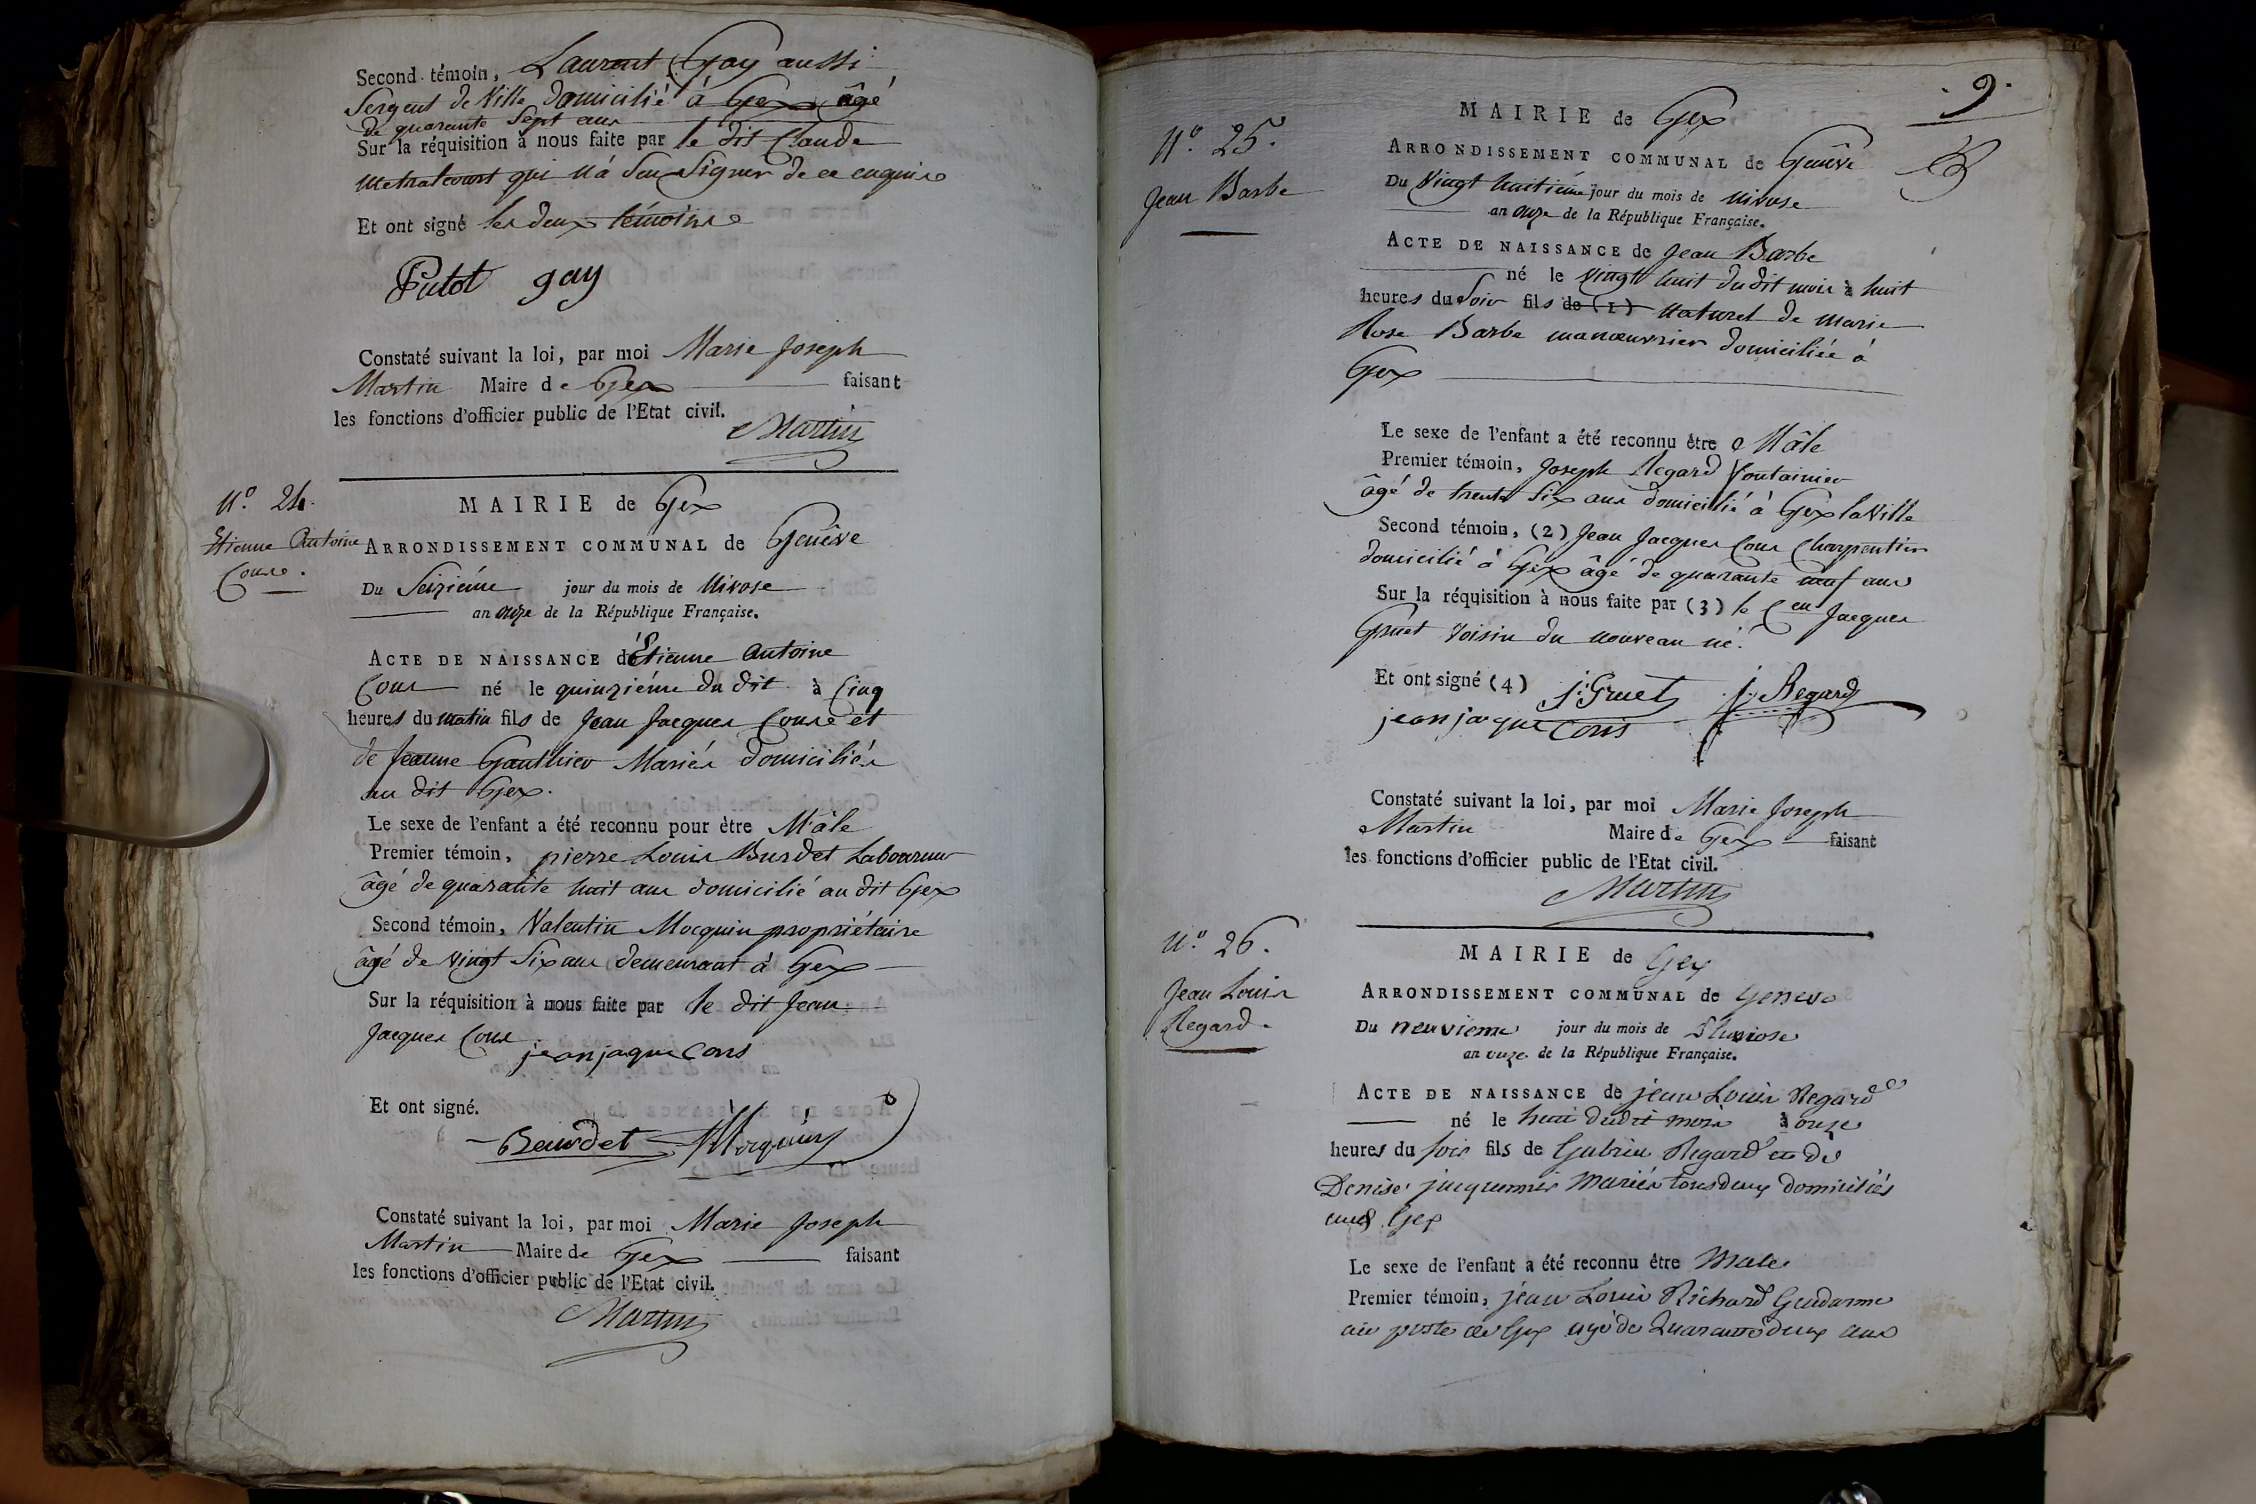 Second témoin, Laurent Gay aussi
Sergent de Ville domicilié à Gex âgé
de quarante Sept ans
Sur la réquisition à nous faite par le dit Claude
Metralcourt qui n'a Sçu Signer de ce enquis
Et ont signé les deux témoins
Putot gay
Constaté suivant la loi, par moi Marie Joseph
Martin Maire de Gex faisant
les fonctions d'officier public de l'Etat civil.
Martin
N.º 24.
Etienne Antoine
Cons.
MAIRIE de Gex
ARRONDISSEMENT COMMUNAL de Genêve
Du Seizième jour du mois de Nivose
an onze de la République Française.
ACTE DE NAISSANCE d'Etienne Antoine
Cons né le quinzième du dit à Cinq
heures du matin fils de Jean Jacques Cons et
de Jeanne Gauthier Mariés domiciliés
au dit Gex.
Le sexe de l'enfant a été reconnu pour être Mâle
Premier témoin, pierre Louis Burdet Laboureur
âgé de quarante huit ans domicilié au dit Gex
Second témoin, Valentin Mocquin propriétaire
âgé de vingt Six ans demeurant à Gex
Sur la réquisition à nous faite par le dit Jean
Jacques Cons
jeanjaque Cons
Et ont signé.
Beurdet Mocquin
Constaté suivant la loi, par moi Marie Joseph
Martin Maire de Gex faisant
les fonctions d'officier public de l'Etat civil.
Martin
9.
N.º 25.
Jean Barbe
MAIRIE de Gex
ARRONDISSEMENT COMMUNAL de Genêve
Du Vingt huitième jour du mois de nivose
an onze de la République Française.
ACTE DE NAISSANCE de Jean Barbe
né le vingt huit du dit mois à huit
heures du Soir fils de (1) Naturel de Marie
Rose Barbe manœuvrier domiciliée à
Gex
Le sexe de l'enfant a été reconnu être Mâle
Premier témoin, Joseph Regard fontainier
âgé de trente Six ans domicilié à Gex la Ville
Second témoin, (2) Jean Jacques Cons Charpentier
domicilié à Gex âgé de quarante neuf ans
Sur la réquisition à nous faite par (3) le Cen Jacques
Gruet voisin du nouveau né.
Et ont signé (4) j: Gruet j: Regard
jeanjaque Cons
Constaté suivant la loi, par moi Marie Joseph
Martin Maire de Gex faisant
les fonctions d'officier public de l'Etat civil.
Martin
N.º 26.
Jean Louis
Regard.
MAIRIE de Gex
ARRONDISSEMENT COMMUNAL de Geneve
Du neuvieme jour du mois de Pluviose
an onze de la République Française.
ACTE DE NAISSANCE de jean Louis Regard
né le huit dudit mois à onze
heures du soir fils de Gabriel Regard et de
Denise jacquemier Mariés tous deux domiciliés
Gex
Le sexe de l'enfant a été reconnu être Male
Premier témoin, jean Louis Richard Gendarme
au poste de Gex agé de Quarante deux ans